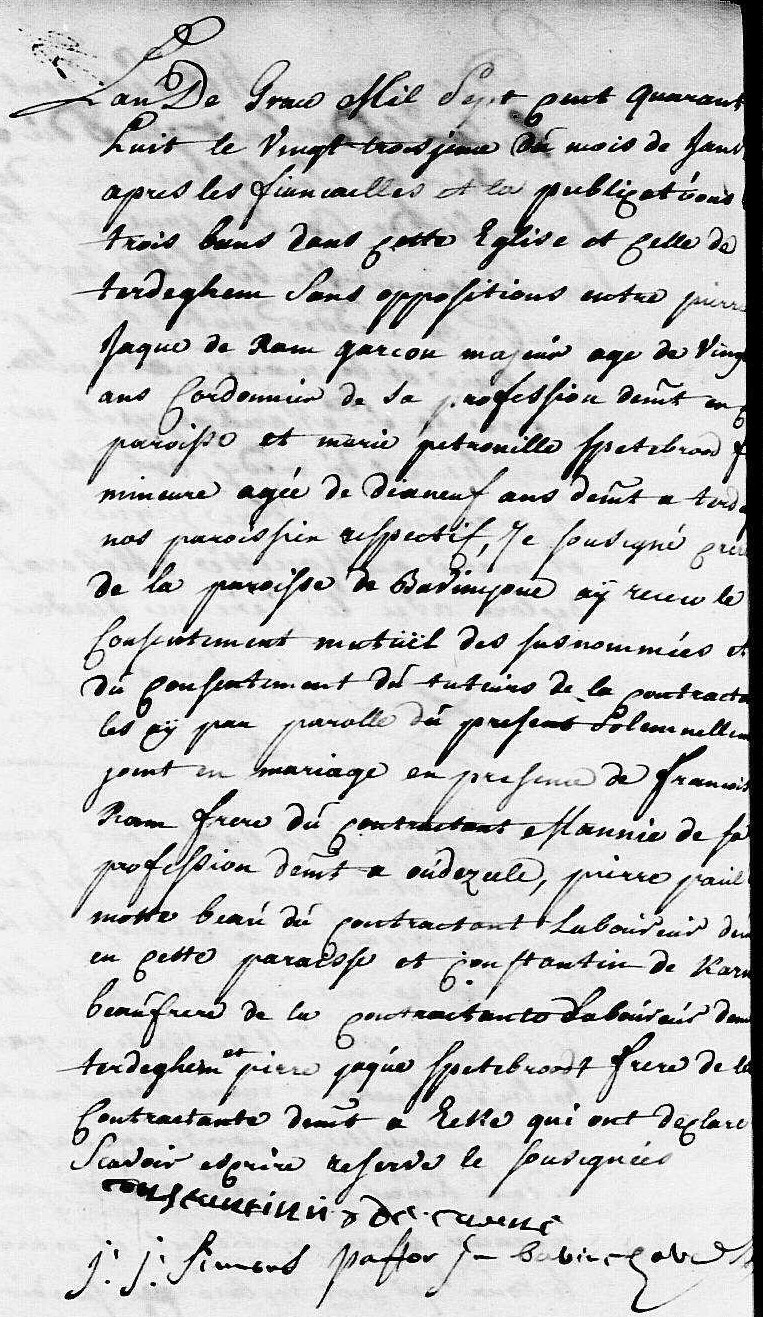 L'an De Grace Mil Sept cent quarant
huit le Vingt troisjeme du mois de Janv
apres les fiancailles et la publications
trois bans dans cette Eglise et celle de
terdeghem Sans oppositions entre pierre
Jaque de Ram garcon majeur age de Ving
ans Cordonnier de Sa profession demt en c
paroisse et marie petronille Spetebroodt f
mineure agée de dixneuf ans demt a terde
nos paroissien respectif, Je sousigné cure
de la paroisse de Bavinjove aÿ receu le
Consentement mutüel des susnommées et
du consentement du tuteurs de la contracta
les aÿ par parolle du present Solemnellem
joint en mariage en presence de francois
Ram frere du contractant Mannie de sa
profession demt a oudezeele, pierre paul
motte beau du contractant Laboureur dem
en cette paroisse et Constantin de Karn
beaufrere de la contractante Laboureur dem
terdeghem et pierre jaque Spetebroodt frere de la
Contractante demt a Ecke qui ont declare
Scavoir escrire reserve le sousignées
constantinus de carne
j: j: Simons pastor in bavinchove